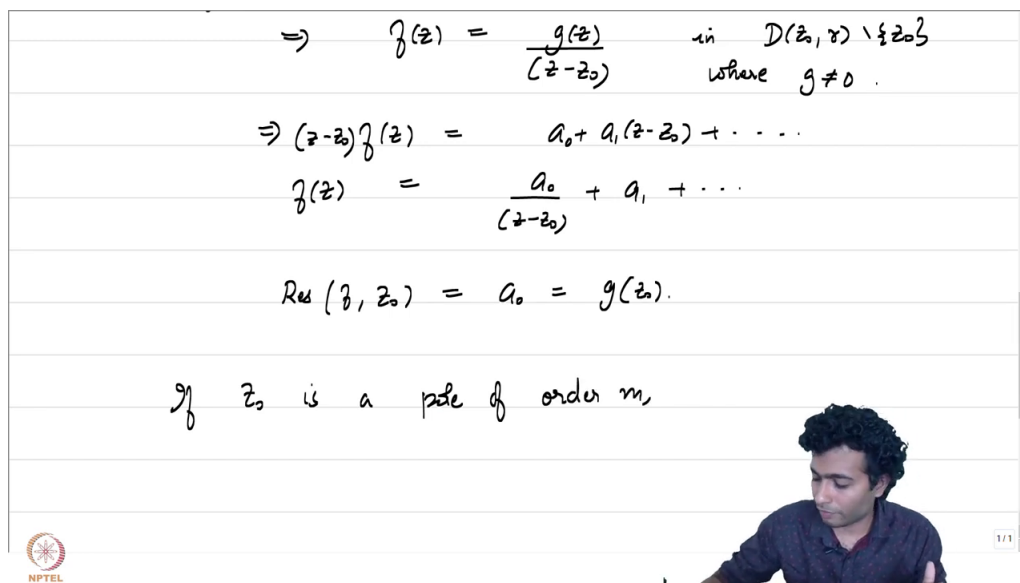 ⇒ f(z) = g(z)/(z-z₀) in D(z₀, r) \ {z₀}
where g ≠ 0 .
⇒ (z-z₀) f(z) = a₀ + a₁(z-z₀) + ....
f(z) = a₀/(z-z₀) + a₁ + ...
Res (f, z₀) = a₀ = g(z₀).
If z₀ is a pole of order m,
1/1
NPTEL